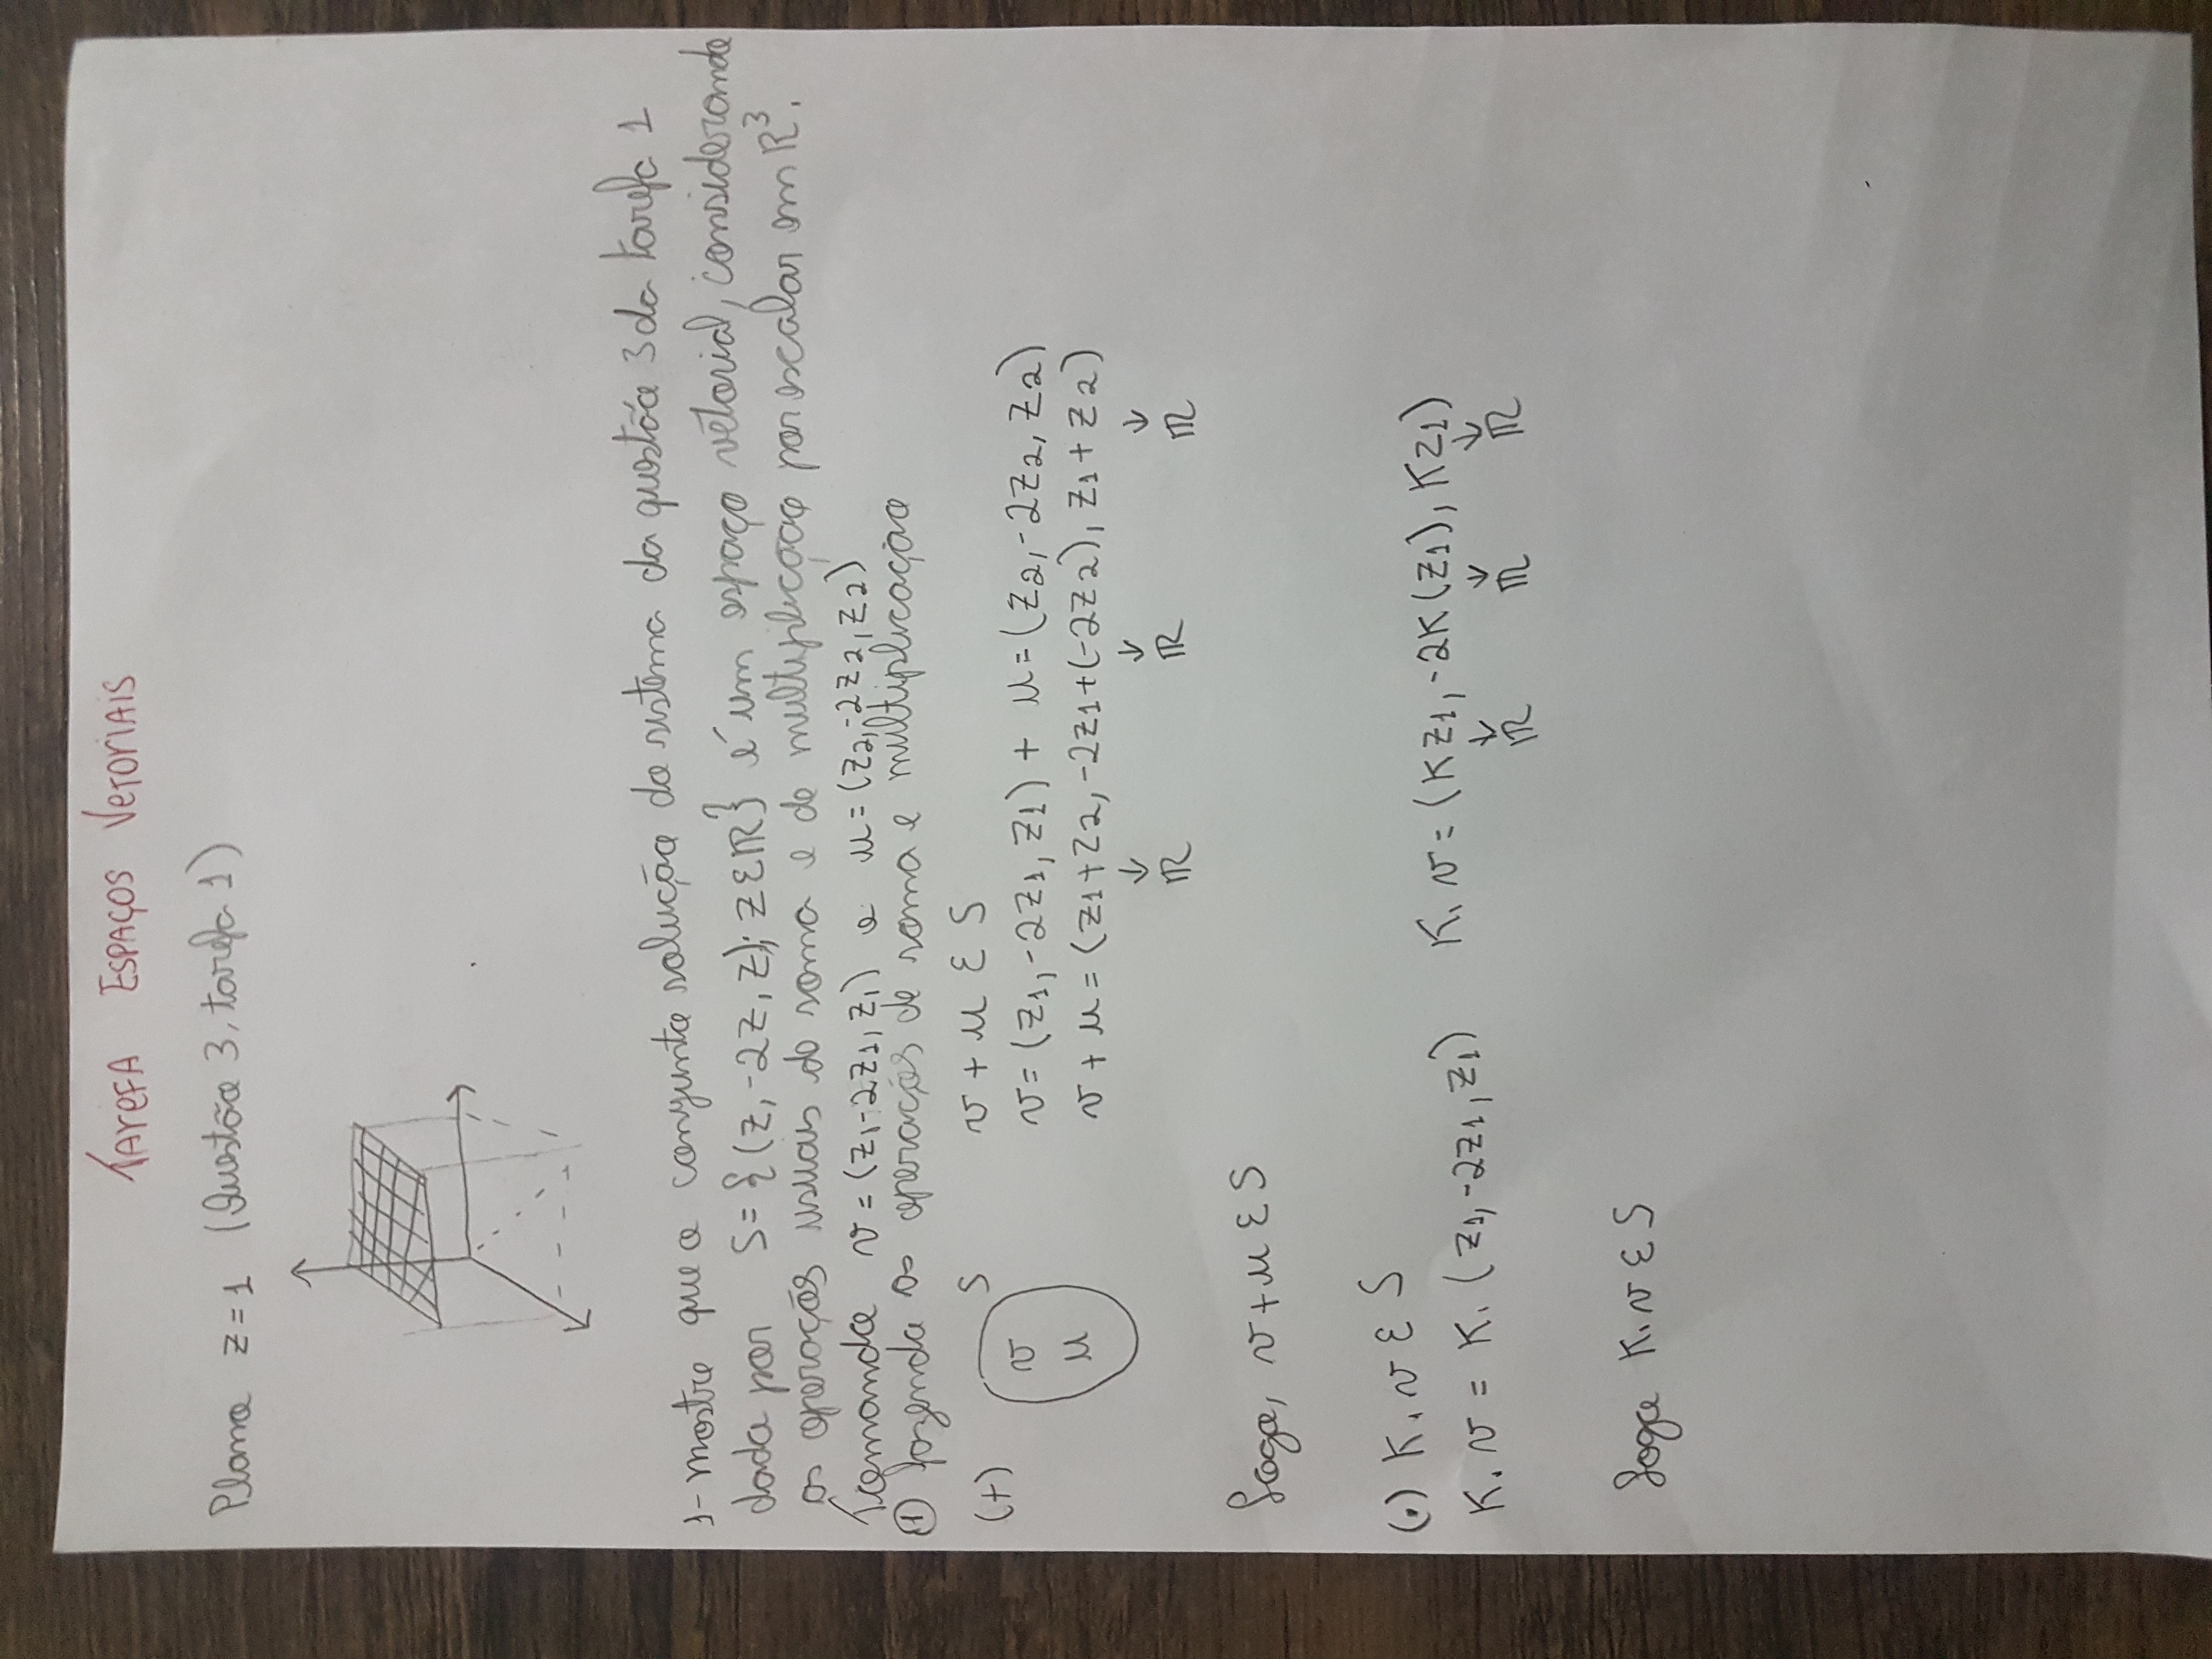 TAREFA ESPAÇOS VETORIAIS
Plano z=1 (Questão 3, tarefa 1)
1-mostre que o conjunto solução do sistema da questão 3 da tarefa 1
dado por S={(z,-2z,z); z∈ℝ} é um espaço vetorial, considerando
as operações usuais de soma e de multiplicação por escalar em R³.
Tomando v=(z1-2z1,z1) e u=(z2,-2z2,z2)
① fazendo as operações de soma e multiplicação
(+) S v+u ∈ S
v v=(z1,-2z1,z1) + u=(z2,-2z2,z2)
u v+u=(z1+z2,-2z1+(-2z2),z1+z2)
↓ ↓ ↓
ℝ ℝ ℝ
Logo, v+u ∈ S
(.) K.v ∈ S
K.v = K.(z1,-2z1,z1) K.v=(Kz1,-2K(z1),Kz1)
↓ ↓ ↓
ℝ ℝ ℝ
Logo K.v ∈ S